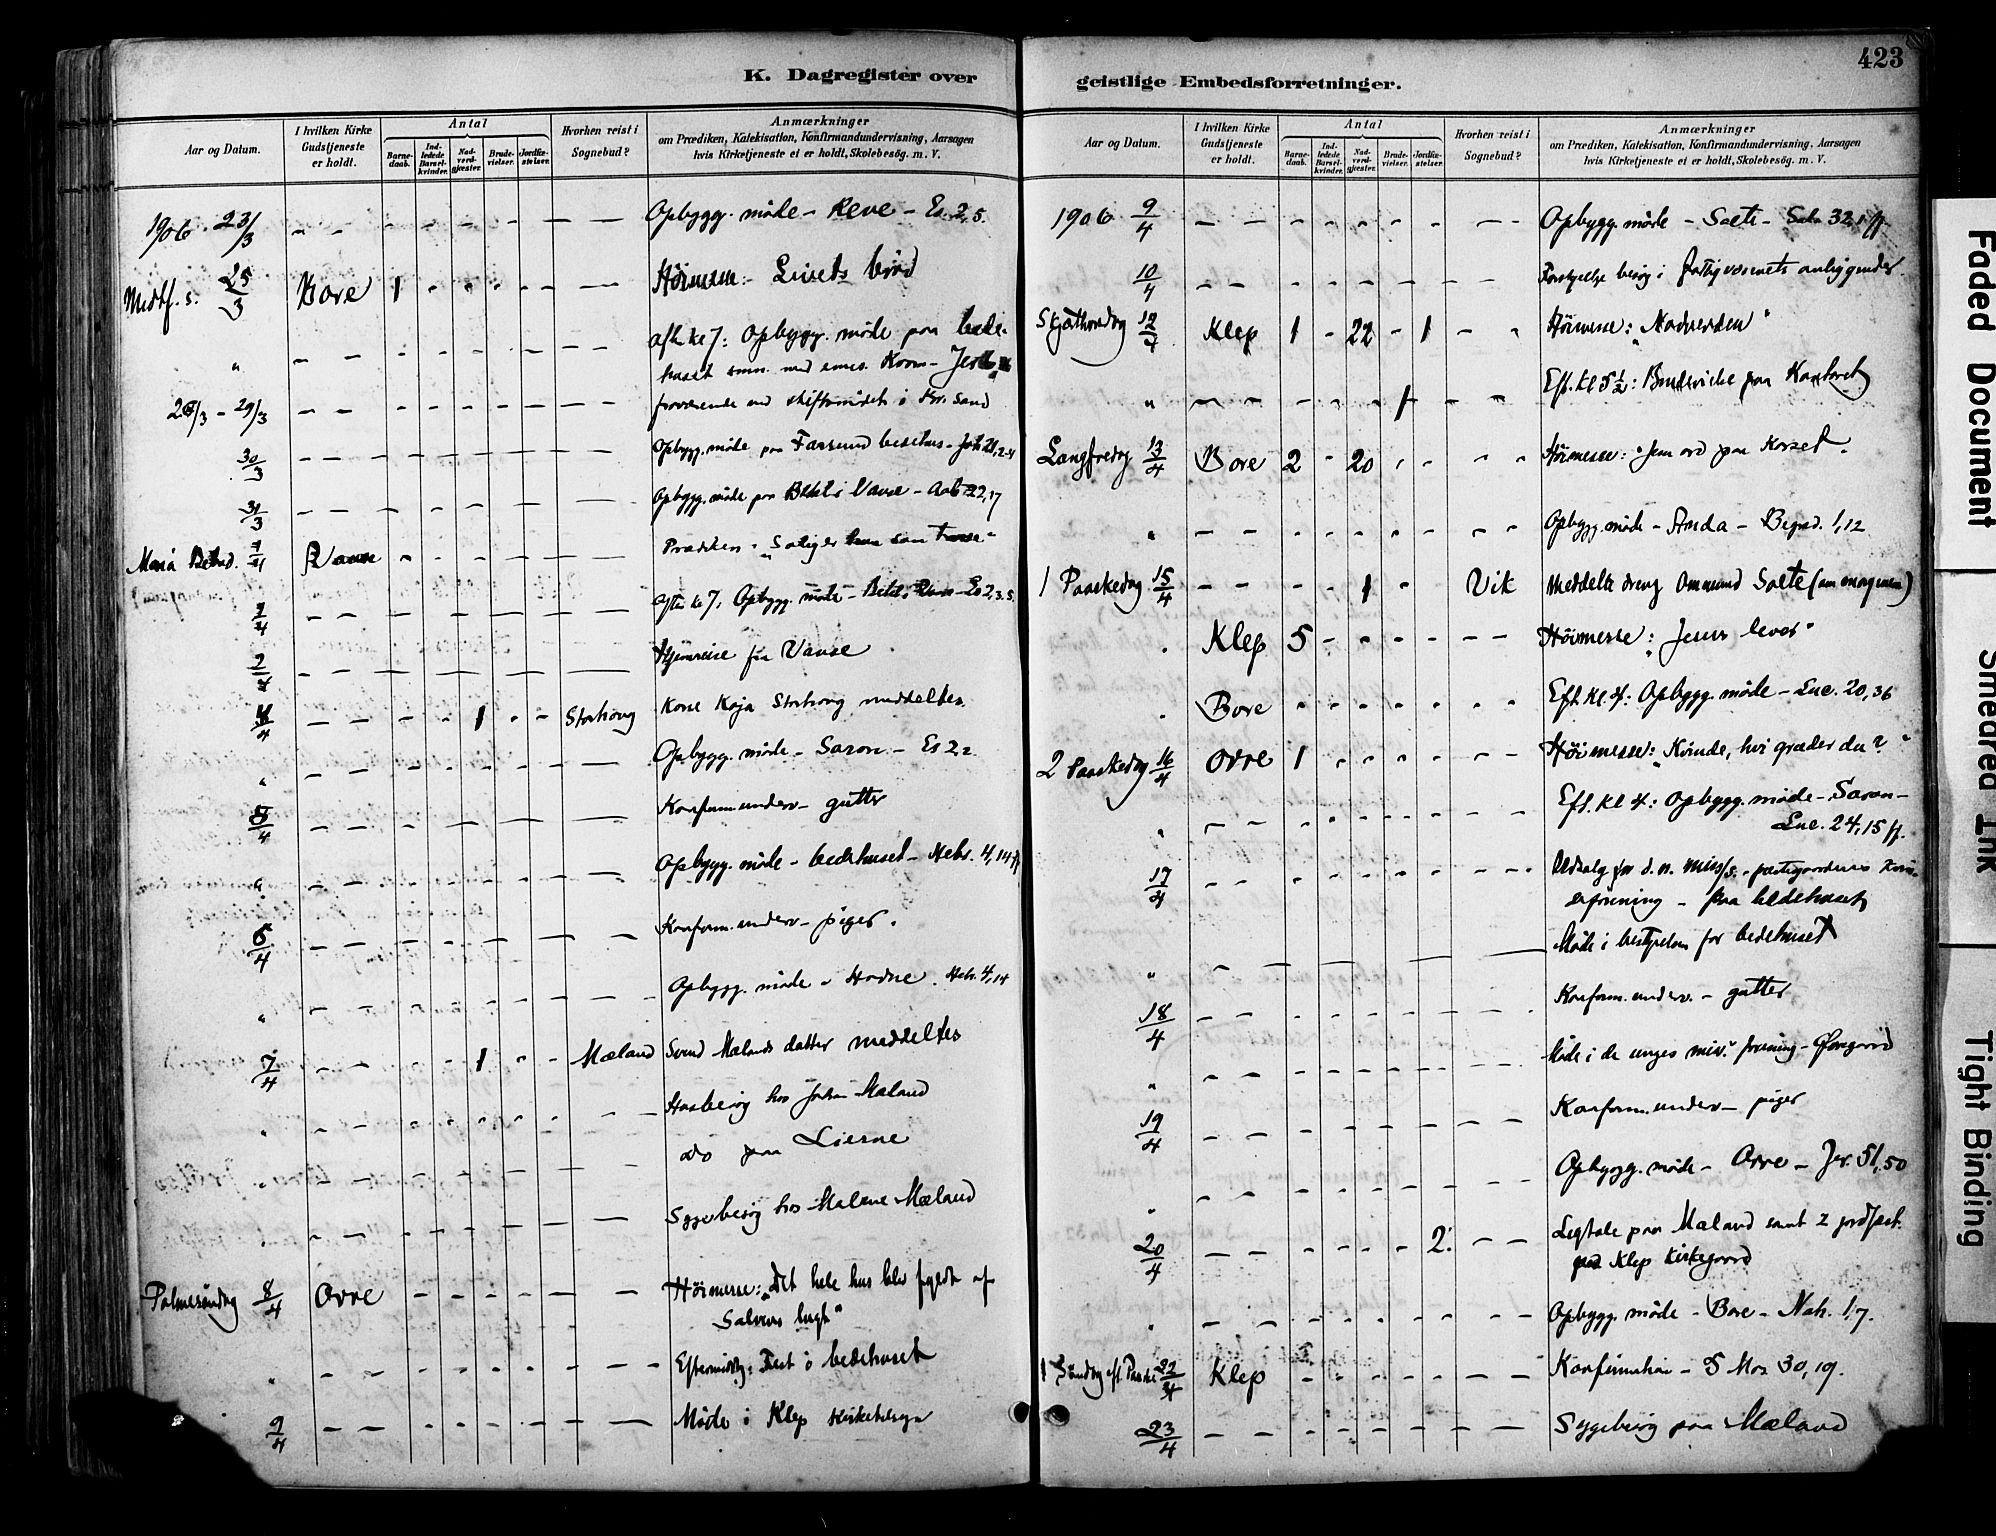 K. Dagregister over
Aar og Datum.
I hvilken Kirke Gudstjeneste er holdt.
Antal
Barnedaab.
Indledede Barselkvinder.
Nadverdgjester.
Brudevielser.
Jordfæstelser.
Hvorhen reist i Sognebud?
Anmærkninger
om Prædiken, Katekisation, Konfirmandundervisning, Aarsagen
hvis Kirketjeneste ei er holdt, Skolebesøg. m. V.
1906 23/3 Opbygg. møde - Reve - Es. 2,5.
Midtf. s. 25/3 Bore 1 Høimesse: Livets brød
" aft. kl 7: Opbygg. møde paa bede-
huset
26/3 - 29/3 fraværende ved skiftemødet i Kr.sand
30/3 Opbygg. møde paa Farsund bedehus - Joh 21,2-4
31/3 Opbygg. møde paa Betel i Vanse - Aab 22,17
Mariæ Bebud. 1/4 Vanse Prædiken: "Salig er
1/4 Aften kl 7: Opbygg. møde - Betel, Vanse - Es 2,3.5.
2/4 Hjemreise fra Vanse
4/4 1 Storhoug Kone Kaja Storhoug meddeltes
" Opbygg. møde - Saron - Es 2
5/4 Konfirm. underv. - gutter
" Opbygg. møde - bedehuset - Hebr. 4,14 ff
6/4 Konfirm. underv - piger.
" Opbygg. møde - Hodne. Hebr. 4,14
7/4 1 Mæland Svend Mælands datter meddeltes
" Husbesøg hos Mæland
do paa Lierne
" Sygebesøg hos Malene Mæland
Palmesøndag 8/4 Orre Høimesse: "Det hele hus blev fyldt af
Salvens lugt"
" Eftermiddg: Fest i bedehuset
9/4 Møde i Klep kirketilsyn
423
geistlige Embedsforretninger.
Aar og Datum.
I hvilken Kirke Gudstjeneste er holdt.
Antal
Barnedaab.
Indledede Barselkvinder.
Nadverdgjester.
Brudevielser.
Jordfæstelser.
Hvorhen reist i Sognebud?
Anmærkninger
om Prædiken, Katekisation, Konfirmandundervisning, Aarsagen
hvis Kirketjeneste ei er holdt, Skolebesøg. m. V.
1906 9/4 Opbygg. møde - Sælte - Salm 32,1 ff
10/4 Forskjellige besøg i fattigvæsenets anliggender
Skjæthorsdag 12/4 Klep 1 22 1 Høimesse: "Nadverden"
" 1 Eft. kl 5 ½: Brudevielse paa Kontoret
Langfredag 13/4 Bore 2 20 Høimesse: ord paa Korset.
" Opbygg. møde - Anda - 1,12
1 Paaskedag 15/4 1 Vik Meddelte dreng Ommund Sælte (om morgenen)
" Klep 5 Høimesse: "Jesus lever"
" Bore Eft. kl. 4: Opbygg. møde - Luc. 20,36
2 Paaskedag 16/4 Orre 1 Høimesse: "Kvinde, hvi græder du?"
" Eft. kl 4: Opbygg. møde - Saron -
Luc. 24,15 ff.
17/4 Udsalg for d. n. miss/s. - prestegaardens
forening - paa bedehuset
" Møde i bestyrelsen for bedehuset
18/4 Konfirm. underv. - gutter
" Møde i de unges miss. forening - Øksnevad
19/4 Konfirm. underv - piger
" Opbygg. møde - Orre - Jer. 51,50
20/4 2. Ligtale paa Mæland samt 2 jordfæst.
paa Klep Kirkegaard
" Opbygg. møde - Bore - Nah. 1,7.
1 Søndag eft. Paaske 22/4 Klep Konfirmation - 5 Mos 30,19.
23/4 Sygebesøg paa Mæland
Faded Document
Smeared Ink
Tight Binding